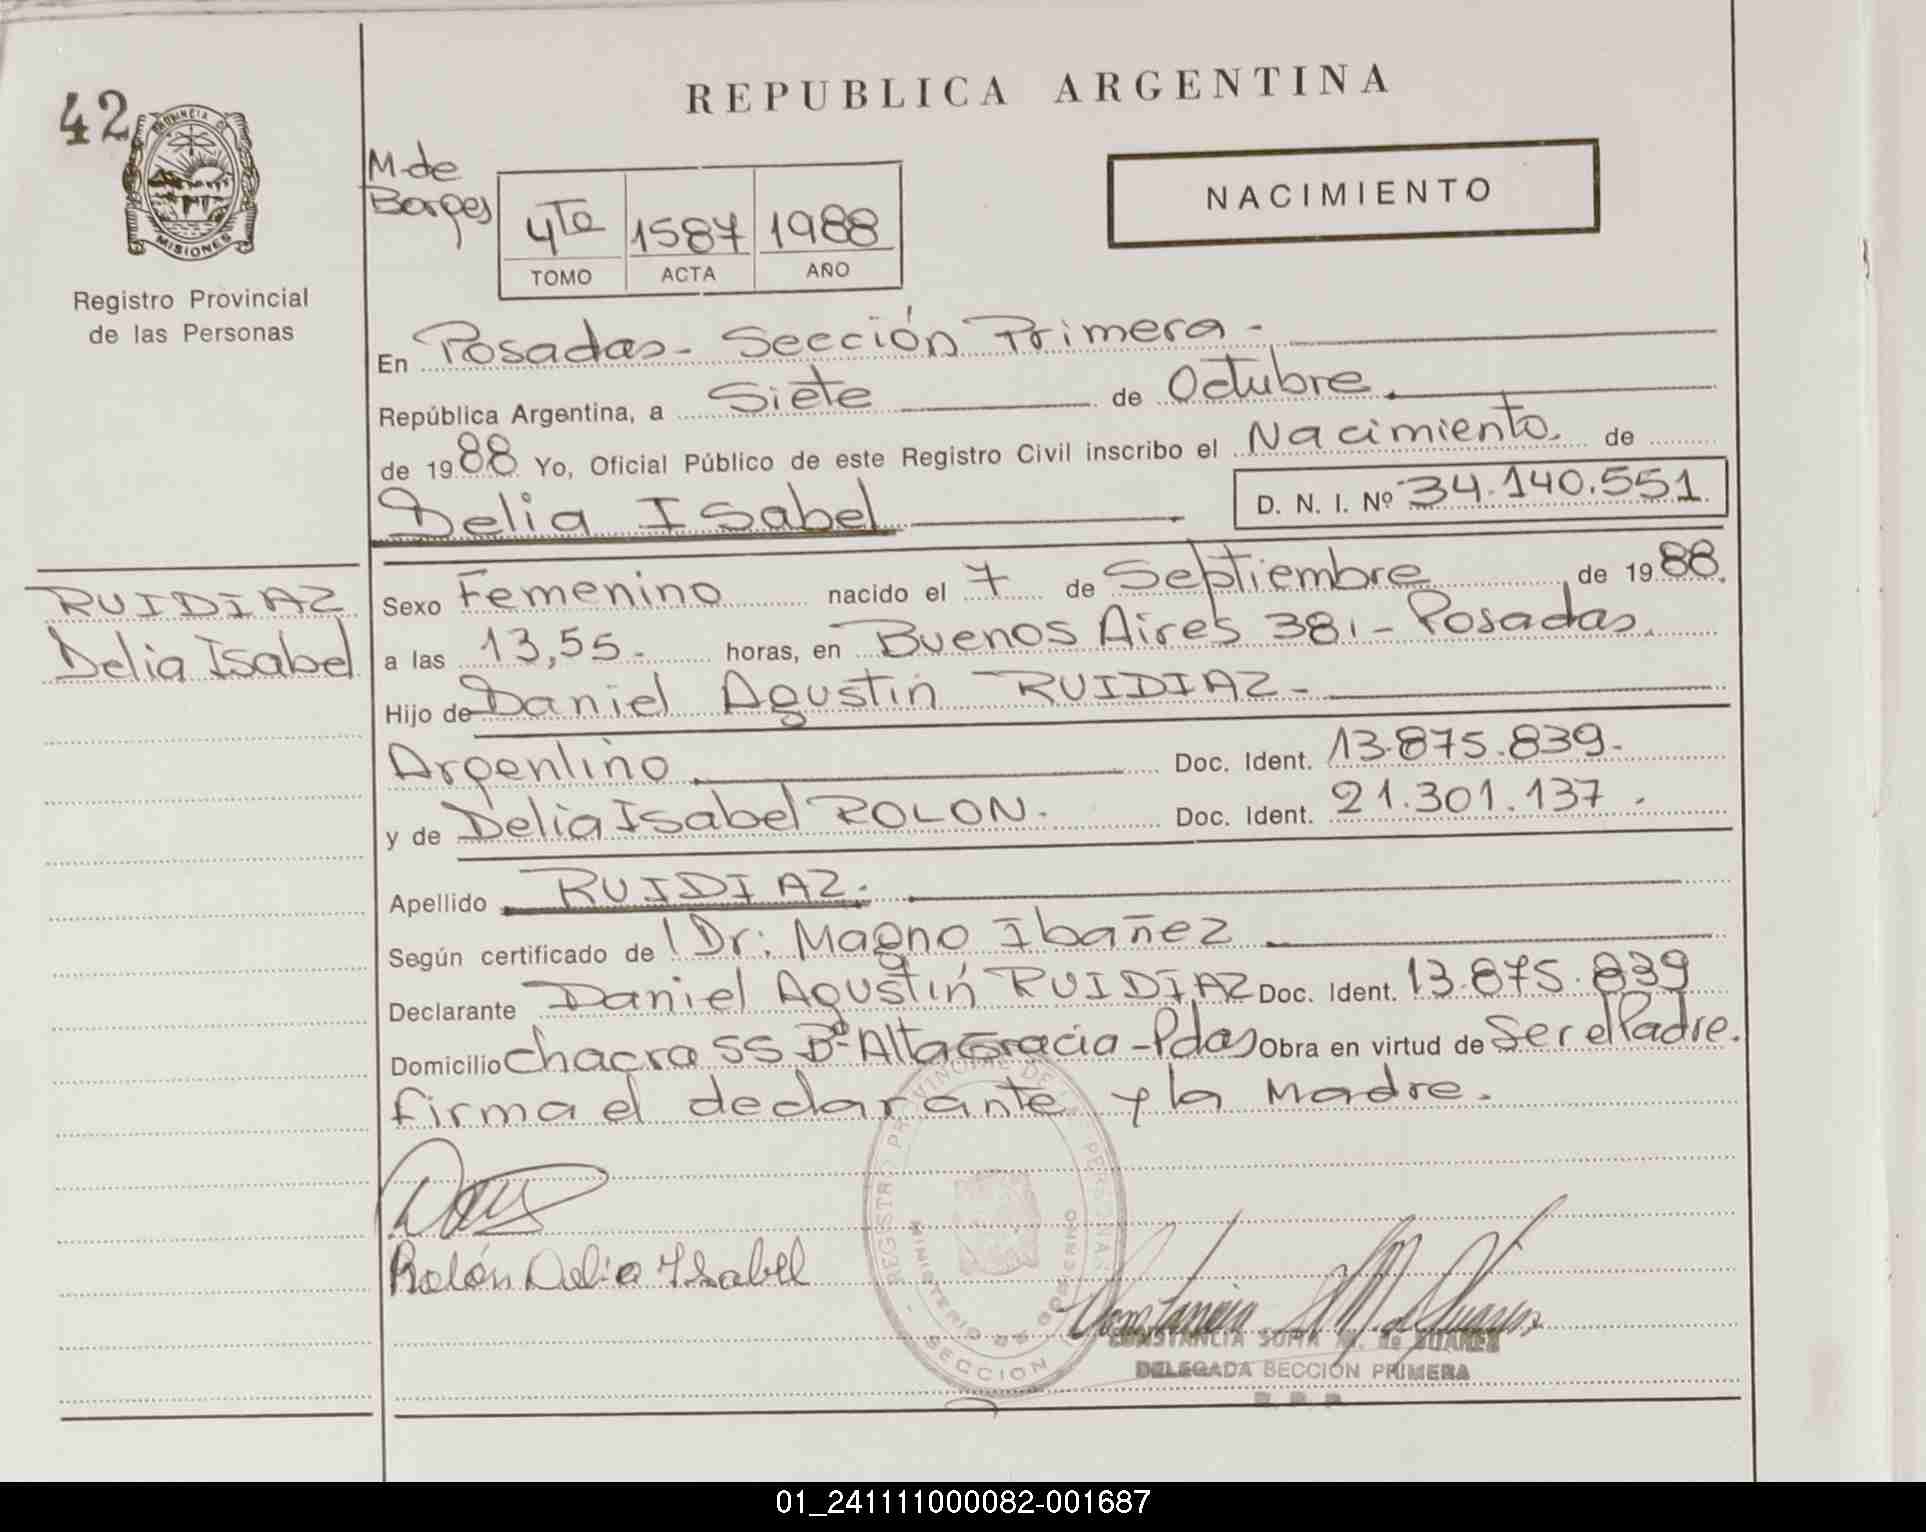 REPUBLICA ARGENTINA
42
PROVINCIA DE
MISIONES
Registro Provincial
de las Personas
M. de
Borges
4to 1587 1988
TOMO ACTA AÑO
NACIMIENTO
En Posadas - Sección Primera -
República Argentina, a Siete de Octubre
de 1988 Yo, Oficial Público de este Registro Civil inscribo el Nacimiento de
Delia Isabel D. N. I. Nº 34.140.551
RUIDIAZ
Delia Isabel
Sexo Femenino nacido el 7 de Septiembre de 1988.
a las 13,55- horas, en Buenos Aires 381 - Posadas.
Hijo de Daniel Agustín RUIDIAZ -
Argentino Doc. Ident. 13.875.839.
y de Delia Isabel ROLON. Doc. Ident. 21.301.137.
Apellido RUIDIAZ.
Según certificado de Dr: Magno Ibañez
Declarante Daniel Agustín RUIDIAZ Doc. Ident. 13.875.839
Domicilio chacra 55 Bº Alta Gracia - Pdas Obra en virtud de Ser el Padre.
firma el declarante y la Madre.
Rolón Delia Isabel
REGISTRO PROVINCIAL DE LAS PERSONAS
MINISTERIO DE GOBIERNO
SECCION
CONSTANCIA SOFIA M. de SUAREZ
DELEGADA SECCION PRIMERA
R. P. P.
01_241111000082-001687